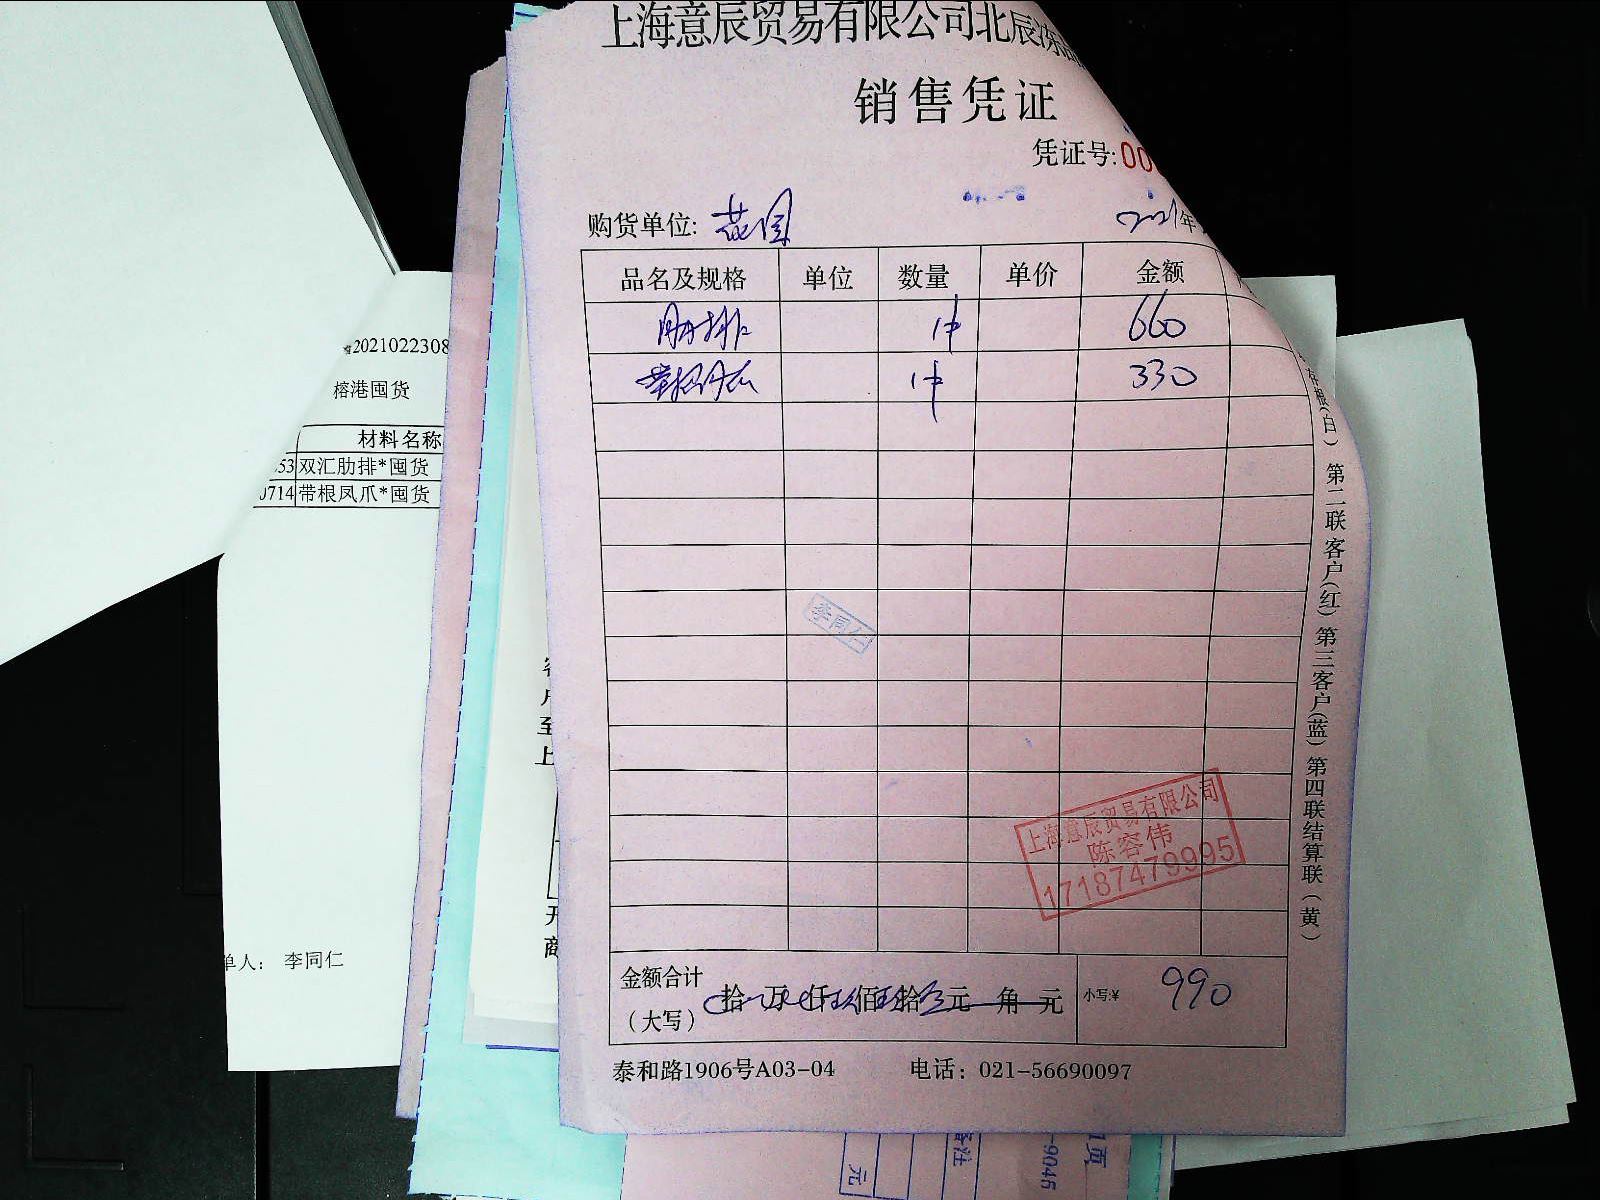 上海意辰贸易有限公司北辰冻品
销售凭证
凭证号:00
购货单位:
2021年
品名及规格 单位 数量 单价 金额
肋排 1件 660
带根凤爪 1件 330
李同仁
上海意辰贸易有限公司
陈容伟
17187479995
金额合计
（大写）
拾 万 仟 佰 拾 元 角 元
小写:¥ 990
泰和路1906号A03-04 电话：021-56690097
(白) 第二联客户(红) 第三客户(蓝) 第四联结算联(黄)
2021022308
榕港囤货
材料名称
53 双汇肋排*囤货
0714 带根凤爪*囤货
单人： 李同仁
至
上
开
商
元
备注
-9046
1页